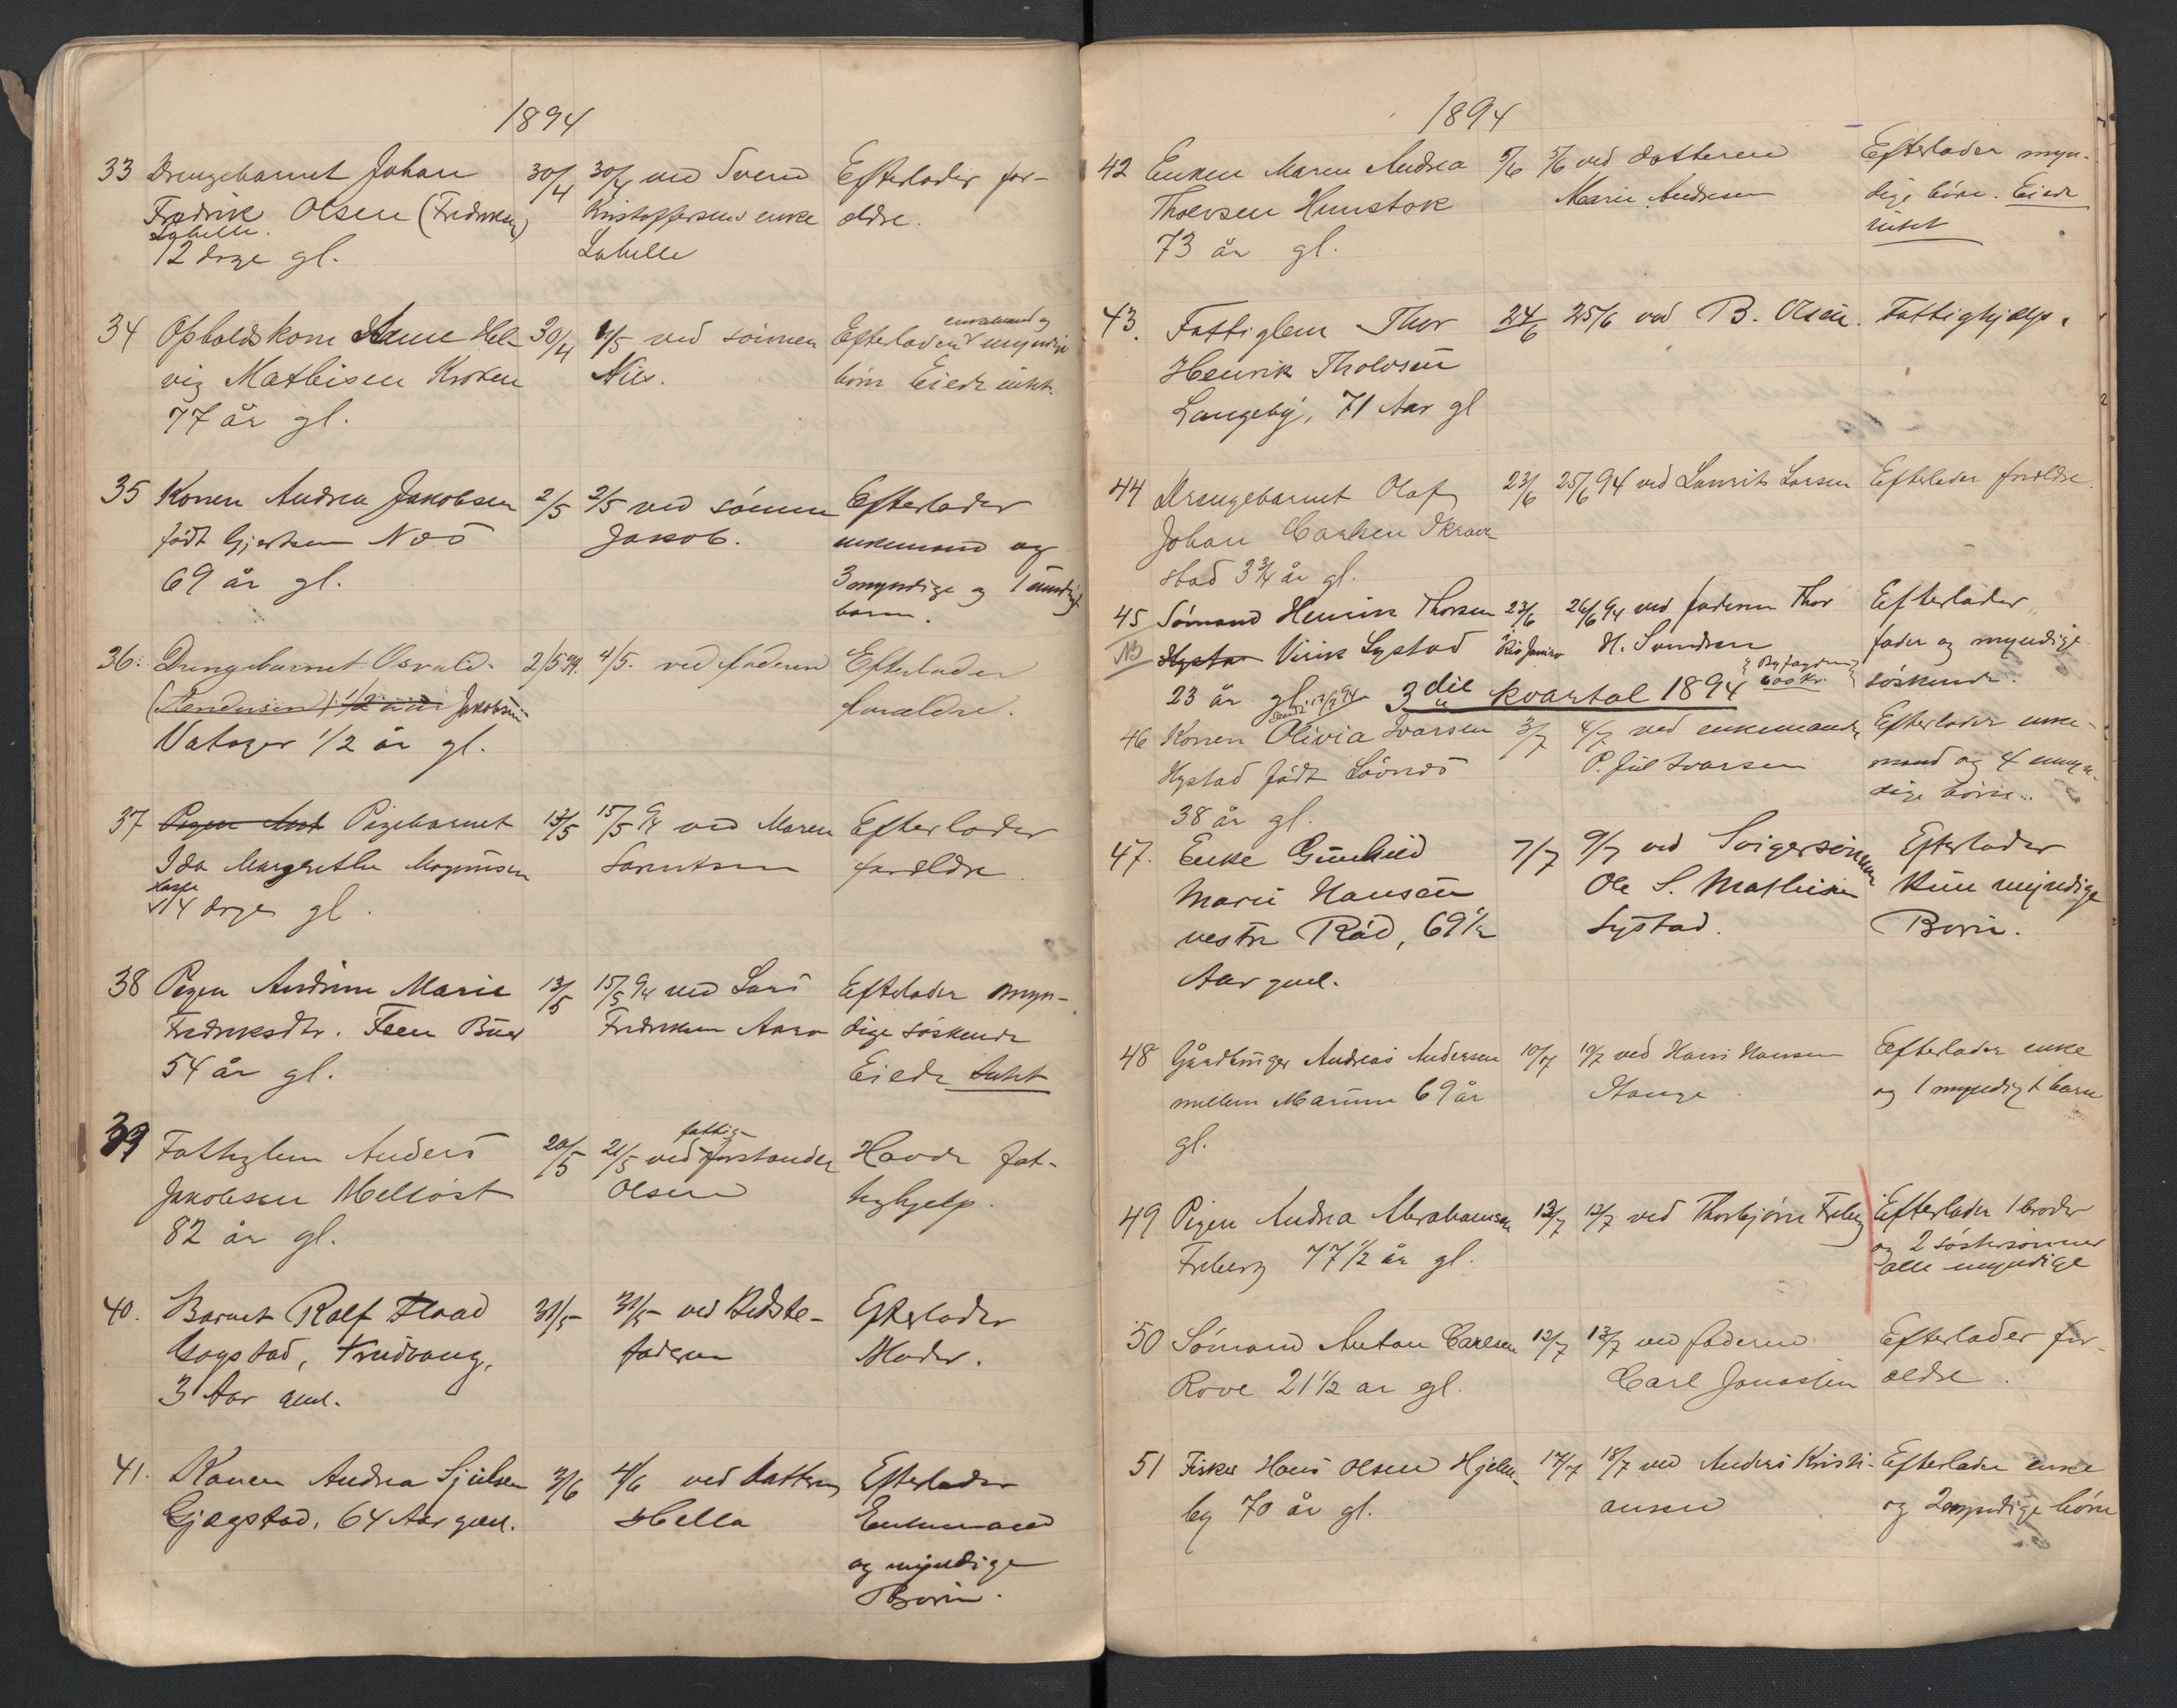 1894
33 Drengebarnet Johan 30/4 30/4 ved Svend Efterlader for-
Fredrik Olsen (Fredriksen) Kristoffersens enke ældre.
Labelle.
12 dage gl. Labelle
34 Opholdskone Anne Hel- 30/4 1/5 ved sønnen Efterlader enkemand og myndige
vig Mathisen Kroken Nils. børn Eiede intet.
77 år gl.
35 Konen Andrea Jakobsen 2/5 2/5 ved sønnen Efterlader
født Gjertsen Næs Jakob. enkemand og
69 år gl. 3 myndige og 1 umyndigt
barn.
36. Drengebarnet Osvald 2/5 94. 4/5. ved faderen Efterlader
Jakobsen forældre.
Vatager 1/2 år gl.
37 Pigebarnet 13/5 15/5 94 ved Maren Efterlader
Ida Margrethe Magnusen Sørensen forældre.
14 dage gl.
38 Pigen Andrine Marie 13/5 15/5 94 ved Lars Efterlader myn-
Fredriksdtr. Feen Buer Fredriksen Aarø dige søskende
54 år gl. Eiede Intet
39 Fattiglem Anders 20/5 21/5 ved fattigforstander Havde fat-
Jakobsen Melløst Olsen tighjelp.
82 år gl.
40. Barnet Rolf Flaad 31/5 31/5 ved Bedste- Efterlader
Gogstad, Fredvang, faderen Moder.
3 Aar gml.
41. Konen Andrea Sjulsen 3/6 4/6 ved Datteren Efterlader
Gjægstad, 64 Aar gml. Hella Enkemand
og myndige
Børn.
1894
42 Enken Maren Andrea 5/6 5/6 ved datteren Efterlader myn-
Tholvsen Hunstok Marie Andresen dige børn. Eiede
73 år gl. intet
43. Fattiglem Thor 24/6 25/6 ved B. Olsen. Fattighjælp.
Henrik Tholvsen
Langeby, 71 Aar gl
44 Drengebarnet Olaf 23/6 25/6 94 ved Laurits Larsen Efterlader forældre.
Johan Carlsen Skrav-
stad 3 3/4 år gl.
45 Sømand Henrik Thorsen 23/6 26/6 94 ved faderen Thor Efterlader
NB Virik Lystad i Rio Janeiro H. Svendsen fader og myndige
23 år gl. 600 Kr. søskende.
3die kvartal 1894
46 Konen Olivia Ivarsen 3/7 4/7 ved enkemanden Efterlader enke-
Hystad født Løvnæs P. Jul Ivarsen mand og 4 umyn-
38 år gl. dige børn.
47. Enke Gunhild 7/7 9/7 ved Svigersønnen Efterlader
Marie Hansen Ole S. Mathisen Kun myndige
vestre Råd, 69 1/2 Lystad. Børn.
Aar gml.
48 Gårdbruger Andreas Andersen 10/7 10/7 ved Hans Hansen Efterlader enke
mellem Marum 69 år Hauge og 1 myndigt barn
gl.
49 Pigen Andrea Abrahamsen 12/7 12/7 ved Thorbjørn Freberg Efterlader 1 broder
Freberg 77 1/2 år gl. og 2 søstersønner
alle myndige
50 Sømand Anton Carlsen 12/7 13/7 ved faderen Efterlader for-
Rove 21 1/2 år gl. Carl Jonassen ældre.
51 Fisker Hans Olsen Hjelm- 17/7 18/7 ved Anders Kristi- Efterlader enke
by 70 år gl. ansen og 2 myndige børn